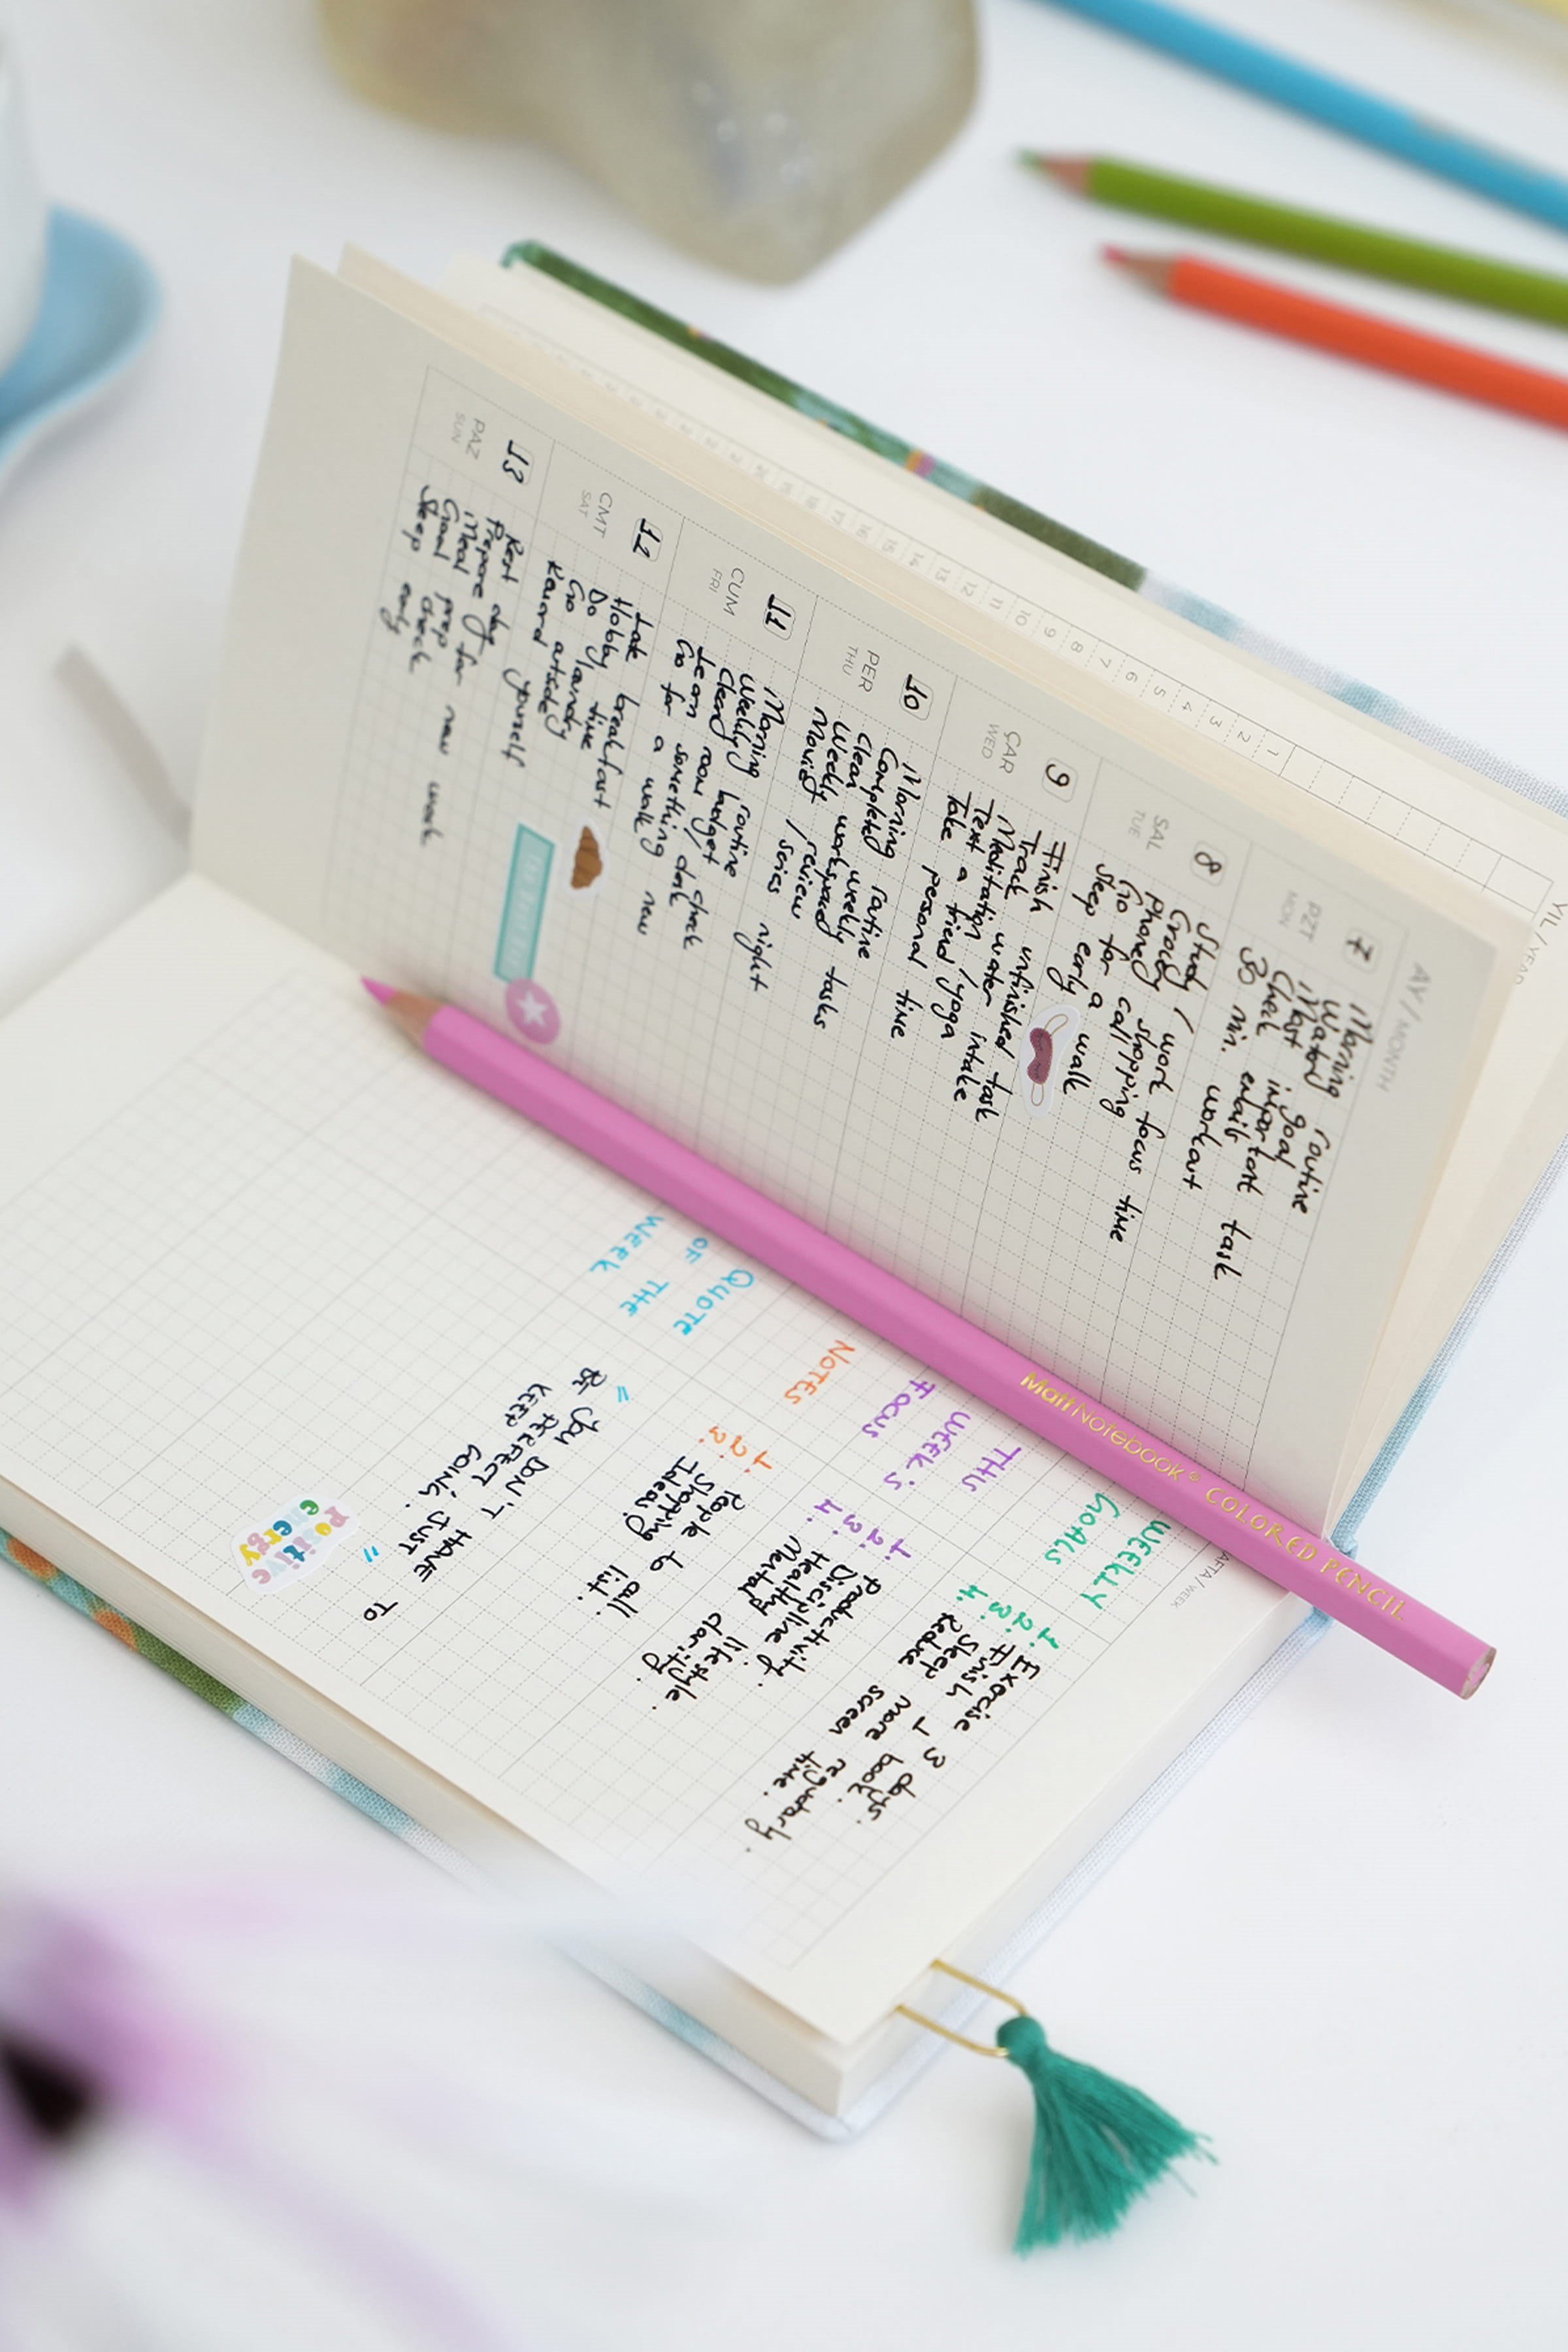 AY / MONTH
7
PZT
MON
Morning routine
Water goal
Most important task
Check emails
30 min. workout
8
SAL
TUE
Study / work focus time
Grocery shopping
Phone call
Go for a walk
Sleep early
9
ÇAR
WED
Finish unfinished task
Track water intake
Meditation / yoga
Text a friend
Take personal time
10
PER
THU
Morning routine
Completed weekly tasks
Clean workspace
Weekly review
Movie / series night
11
CUM
FRI
Morning routine
Weekly budget check
Clean room / desk
Learn something new
Go for a walk
12
CMT
SAT
Late breakfast
Hobby time
Do laundry
Go outside
Reward yourself
13
PAZ
SUN
Rest day
Prepare for new week
Meal prep
Goal check
Sleep early
YIL / YEAR
1 2 3 4 5 6 7 8 9 10 11 12 13 14 15 16 17 18
MattNotebook® COLORED PENCIL
AFTA / WEEK
WEEKLY
GOALS
1. Exercise 3 days.
2. Finish 1 book.
3. Sleep more regularly.
4. Reduce screen time.
THIS
WEEK'S
FOCUS
1. Productivity.
2. Discipline
3. Healthy lifestyle.
4. Mental clarity.
NOTES
1. People to call.
2. Shopping list.
3. Ideas.
QUOTE
OF THE
WEEK
" YOU DON'T HAVE TO
BE PERFECT JUST
KEEP GOING. "
positive
energy